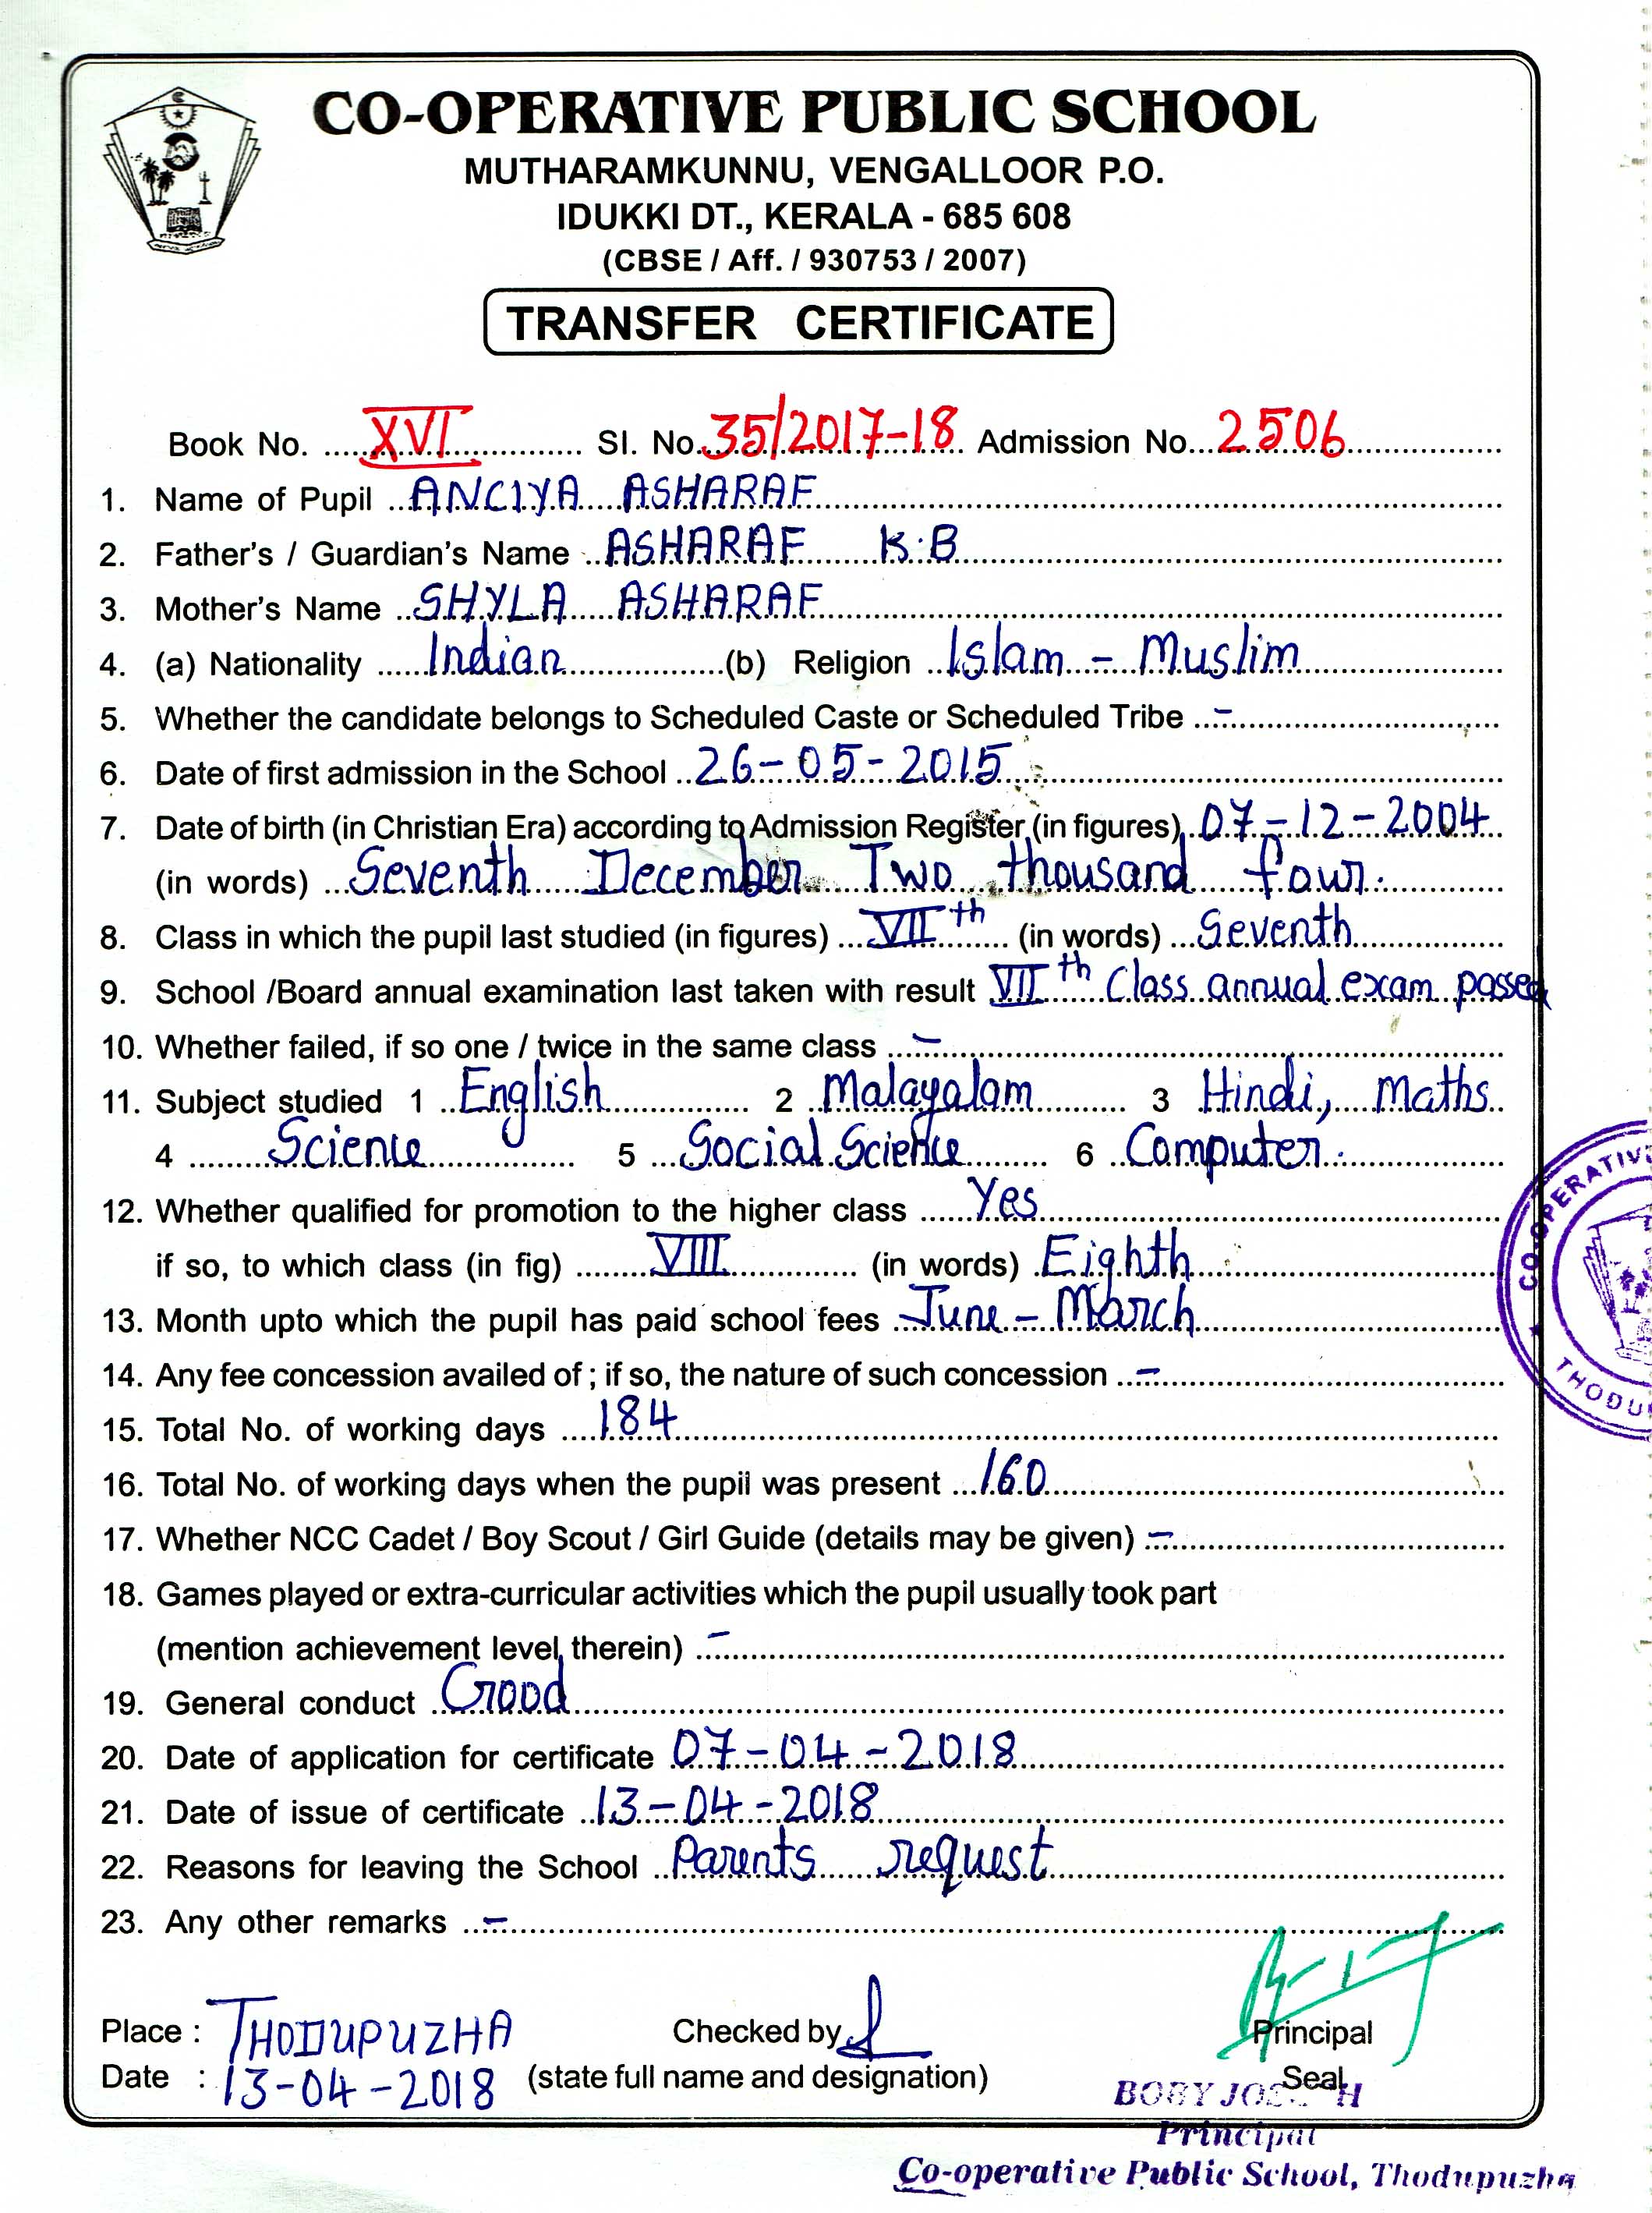 CO-OPERATIVE PUBLIC SCHOOL
MUTHARAMKUNNU, VENGALLOOR P.O.
IDUKKI DT., KERALA - 685 608
(CBSE / Aff. / 930753 / 2007)
TRANSFER CERTIFICATE
Book No. XVI Sl. No. 35/2017-18 Admission No. 2506
1. Name of Pupil ANCIYA ASHARAF
2. Father's / Guardian's Name ASHARAF K.B
3. Mother's Name SHYLA ASHARAF
4. (a) Nationality Indian (b) Religion Islam - Muslim
5. Whether the candidate belongs to Scheduled Caste or Scheduled Tribe -
6. Date of first admission in the School 26-05-2015
7. Date of birth (in Christian Era) according to Admission Register (in figures) 07-12-2004
(in words) Seventh December Two thousand four.
8. Class in which the pupil last studied (in figures) VII th (in words) Seventh
9. School /Board annual examination last taken with result VII th Class annual exam passed
10. Whether failed, if so one / twice in the same class -
11. Subject studied 1 English 2 Malayalam 3 Hindi, Maths
4 Science 5 Social Science 6 Computer.
12. Whether qualified for promotion to the higher class Yes
if so, to which class (in fig) VIII (in words) Eighth
13. Month upto which the pupil has paid school fees June - March
14. Any fee concession availed of ; if so, the nature of such concession -
15. Total No. of working days 184
16. Total No. of working days when the pupil was present 160
17. Whether NCC Cadet / Boy Scout / Girl Guide (details may be given) -
18. Games played or extra-curricular activities which the pupil usually took part
(mention achievement level therein) -
19. General conduct Good
20. Date of application for certificate 07-04-2018
21. Date of issue of certificate 13-04-2018
22. Reasons for leaving the School Parents request
23. Any other remarks -
Place : THODUPUZHA Checked by Principal
Date : 13-04-2018 (state full name and designation) Seal
BOBY JOSEPH
Principal
Co-operative Public School, Thodupuzha
CO-OPERATIV
THODU